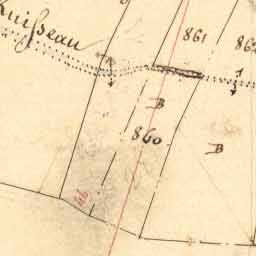 Ruisseau
861
862
B
860
B